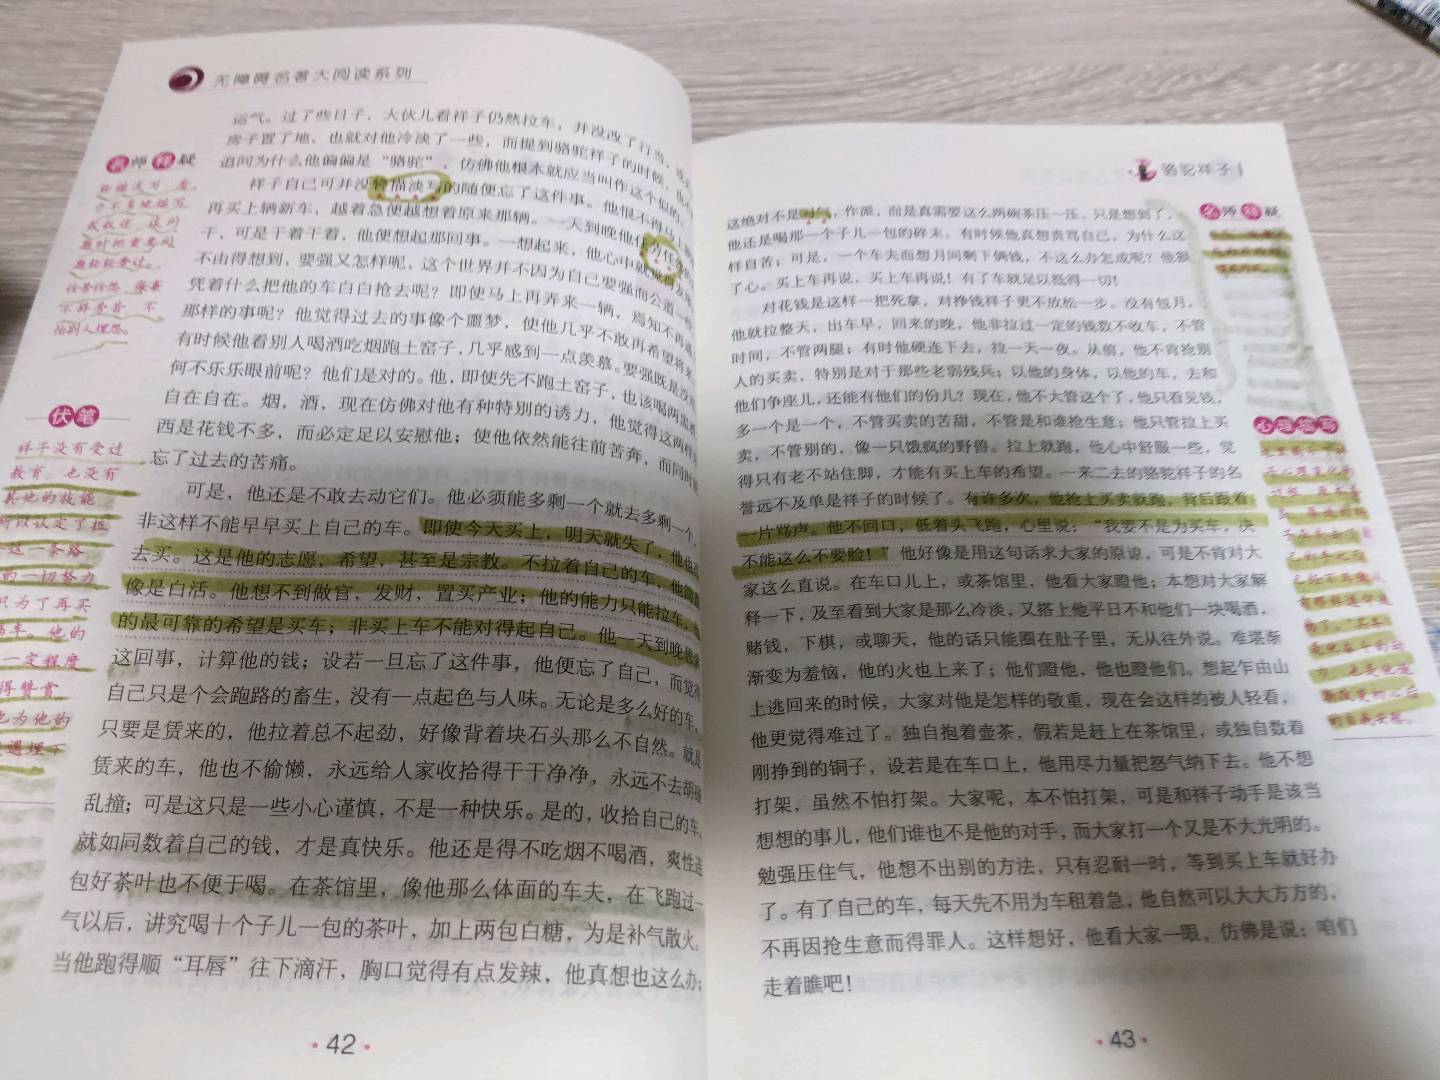 无障碍名著大阅读系列
运气。过了些日子，大伙儿看祥子仍然拉车，并没改了行当，或
房子置了地，也就对他冷淡了一些，而提到骆驼祥子的时候，也
追问为什么他偏偏是“骆驼”，仿佛他根本就应当叫作这个似的。
祥子自己可并没轻描淡写的随便忘了这件事。他恨不得马上就
再买上辆新车，越着急便越想着原来那辆。一天到晚他任劳任怨的
干，可是干着干着，他便想起那回事。一想起来，他心中就觉得发堵
不由得想到，要强又怎样呢，这个世界并不因为自己要强而公道一些
凭着什么把他的车白白抢去呢？即使马上再弄来一辆，焉知不再遇
那样的事呢？他觉得过去的事像个噩梦，使他几乎不敢再希望将来。
有时候他看别人喝酒吃烟跑土窑子，几乎感到一点羡慕。要强既是没用
何不乐乐眼前呢？他们是对的。他，即使先不跑土窑子，也该喝两盅
自在自在。烟，酒，现在仿佛对他有种特别的诱力，他觉得这两样
西是花钱不多，而必定足以安慰他；使他依然能往前苦奔，而同时
忘了过去的苦痛。
可是，他还是不敢去动它们。他必须能多剩一个就去多剩一个，
非这样不能早早买上自己的车。即使今天买上，明天就失了，他也
去买。这是他的志愿，希望，甚至是宗教。不拉着自己的车，他简
像是白活。他想不到做官，发财，置买产业；他的能力只能拉车，
的最可靠的希望是买车；非买上车不能对得起自己。他一天到晚思
这回事，计算他的钱；设若一旦忘了这件事，他便忘了自己，而觉得
自己只是个会跑路的畜生，没有一点起色与人味。无论是多么好的车，
只要是赁来的，他拉着总不起劲，好像背着块石头那么不自然。就是
赁来的车，他也不偷懒，永远给人家收拾得干干净净，永远不去胡碰
乱撞；可是这只是一些小心谨慎，不是一种快乐。是的，收拾自己的车，
就如同数着自己的钱，才是真快乐。他还是得不吃烟不喝酒，爽性连
包好茶叶也不便于喝。在茶馆里，像他那么体面的车夫，在飞跑过一
气以后，讲究喝十个子儿一包的茶叶，加上两包白糖，为是补气散火。
当他跑得顺“耳唇”往下滴汗，胸口觉得有点发辣，他真想也这么办；
名师释疑
轻描淡写
任劳任怨
不辞劳苦，不
怕别人埋怨。
伏笔
祥子没有受过
教育，也没有
其他的技能
所以认定了拉
这一条路
的一切努力
只为了再买
车。他的
一定程度
得赞赏
也为他的
遇埋下
42
骆驼祥子
这绝对不是习气，作派，而是真需要这么两碗茶压一压。只是想到了，
他还是喝那一个子儿一包的碎末。有时候他真想责骂自己，为什么这
样自苦；可是，一个车夫而想月间剩下俩钱，不这么办怎成呢？他狠
了心。买上车再说，买上车再说！有了车就足以抵得一切！
对花钱是这样一把死拿，对挣钱祥子更不放松一步。没有包月，
他就拉整天，出车早，回来的晚，他非拉过一定的钱数不收车，不管
时间，不管两腿；有时他硬连下去，拉一天一夜。从前，他不肯抢别
人的买卖，特别是对于那些老弱残兵；以他的身体，以他的车，去和
他们争座儿，还能有他们的份儿？现在，他不大管这个了，他只看见钱，
多一个是一个，不管买卖的苦甜，不管是和谁抢生意；他只管拉上买
卖，不管别的，像一只饿疯的野兽。拉上就跑，他心中舒服一些，觉
得只有老不站住脚，才能有买上车的希望。一来二去的骆驼祥子的名
誉远不及单是祥子的时候了。有许多次，他抢上买卖就跑，背后跟着
一片骂声。他不回口，低着头飞跑，心里说：“我要不是为买车，决
不能这么不要脸！”他好像是用这句话求大家的原谅，可是不肯对大
家这么直说。在车口儿上，或茶馆里，他看大家瞪他；本想对大家解
释一下，及至看到大家是那么冷淡，又搭上他平日不和他们一块喝酒，
赌钱，下棋，或聊天，他的话只能圈在肚子里，无从往外说。难堪渐
渐变为羞恼，他的火也上来了；他们瞪他，他也瞪他们。想起乍由山
上逃回来的时候，大家对他是怎样的敬重，现在会这样的被人轻看，
他更觉得难过了。独自抱着壶茶，假若是赶上在茶馆里，或独自数着
刚挣到的铜子，设若是在车口上，他用尽力量把怒气纳下去。他不想
打架，虽然不怕打架。大家呢，本不怕打架，可是和祥子动手是该当
想想的事儿，他们谁也不是他的对手，而大家打一个又是不大光明的。
勉强压住气，他想不出别的方法，只有忍耐一时，等到买上车就好办
了。有了自己的车，每天先不用为车租着急，他自然可以大大方方的，
不再因抢生意而得罪人。这样想好，他看大家一眼，仿佛是说：咱们
走着瞧吧！
名师释疑
心理描写
43